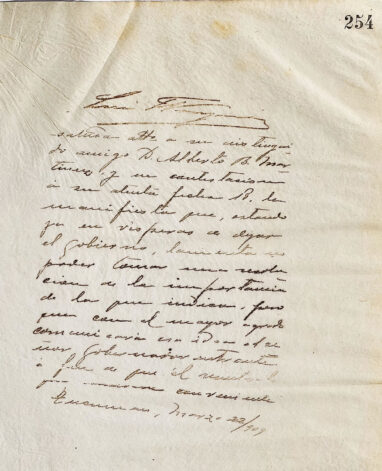 254
saluda atte a su distingui
do amigo D. Alberto B. Mar
tinez, y en contestacion
a su atenta fecha 18, le
manifiesta que, estando
ya en visperas de dejar
el gobierno, lamenta no
poder tomar una resolu
cion de la importancia
de la que indica, pero
que con el mayor agrado
comunicará esa idea al se
ñor Gobernador entrante
a fin de que él resuelva
conveniente
Tucuman, Marzo 22/909